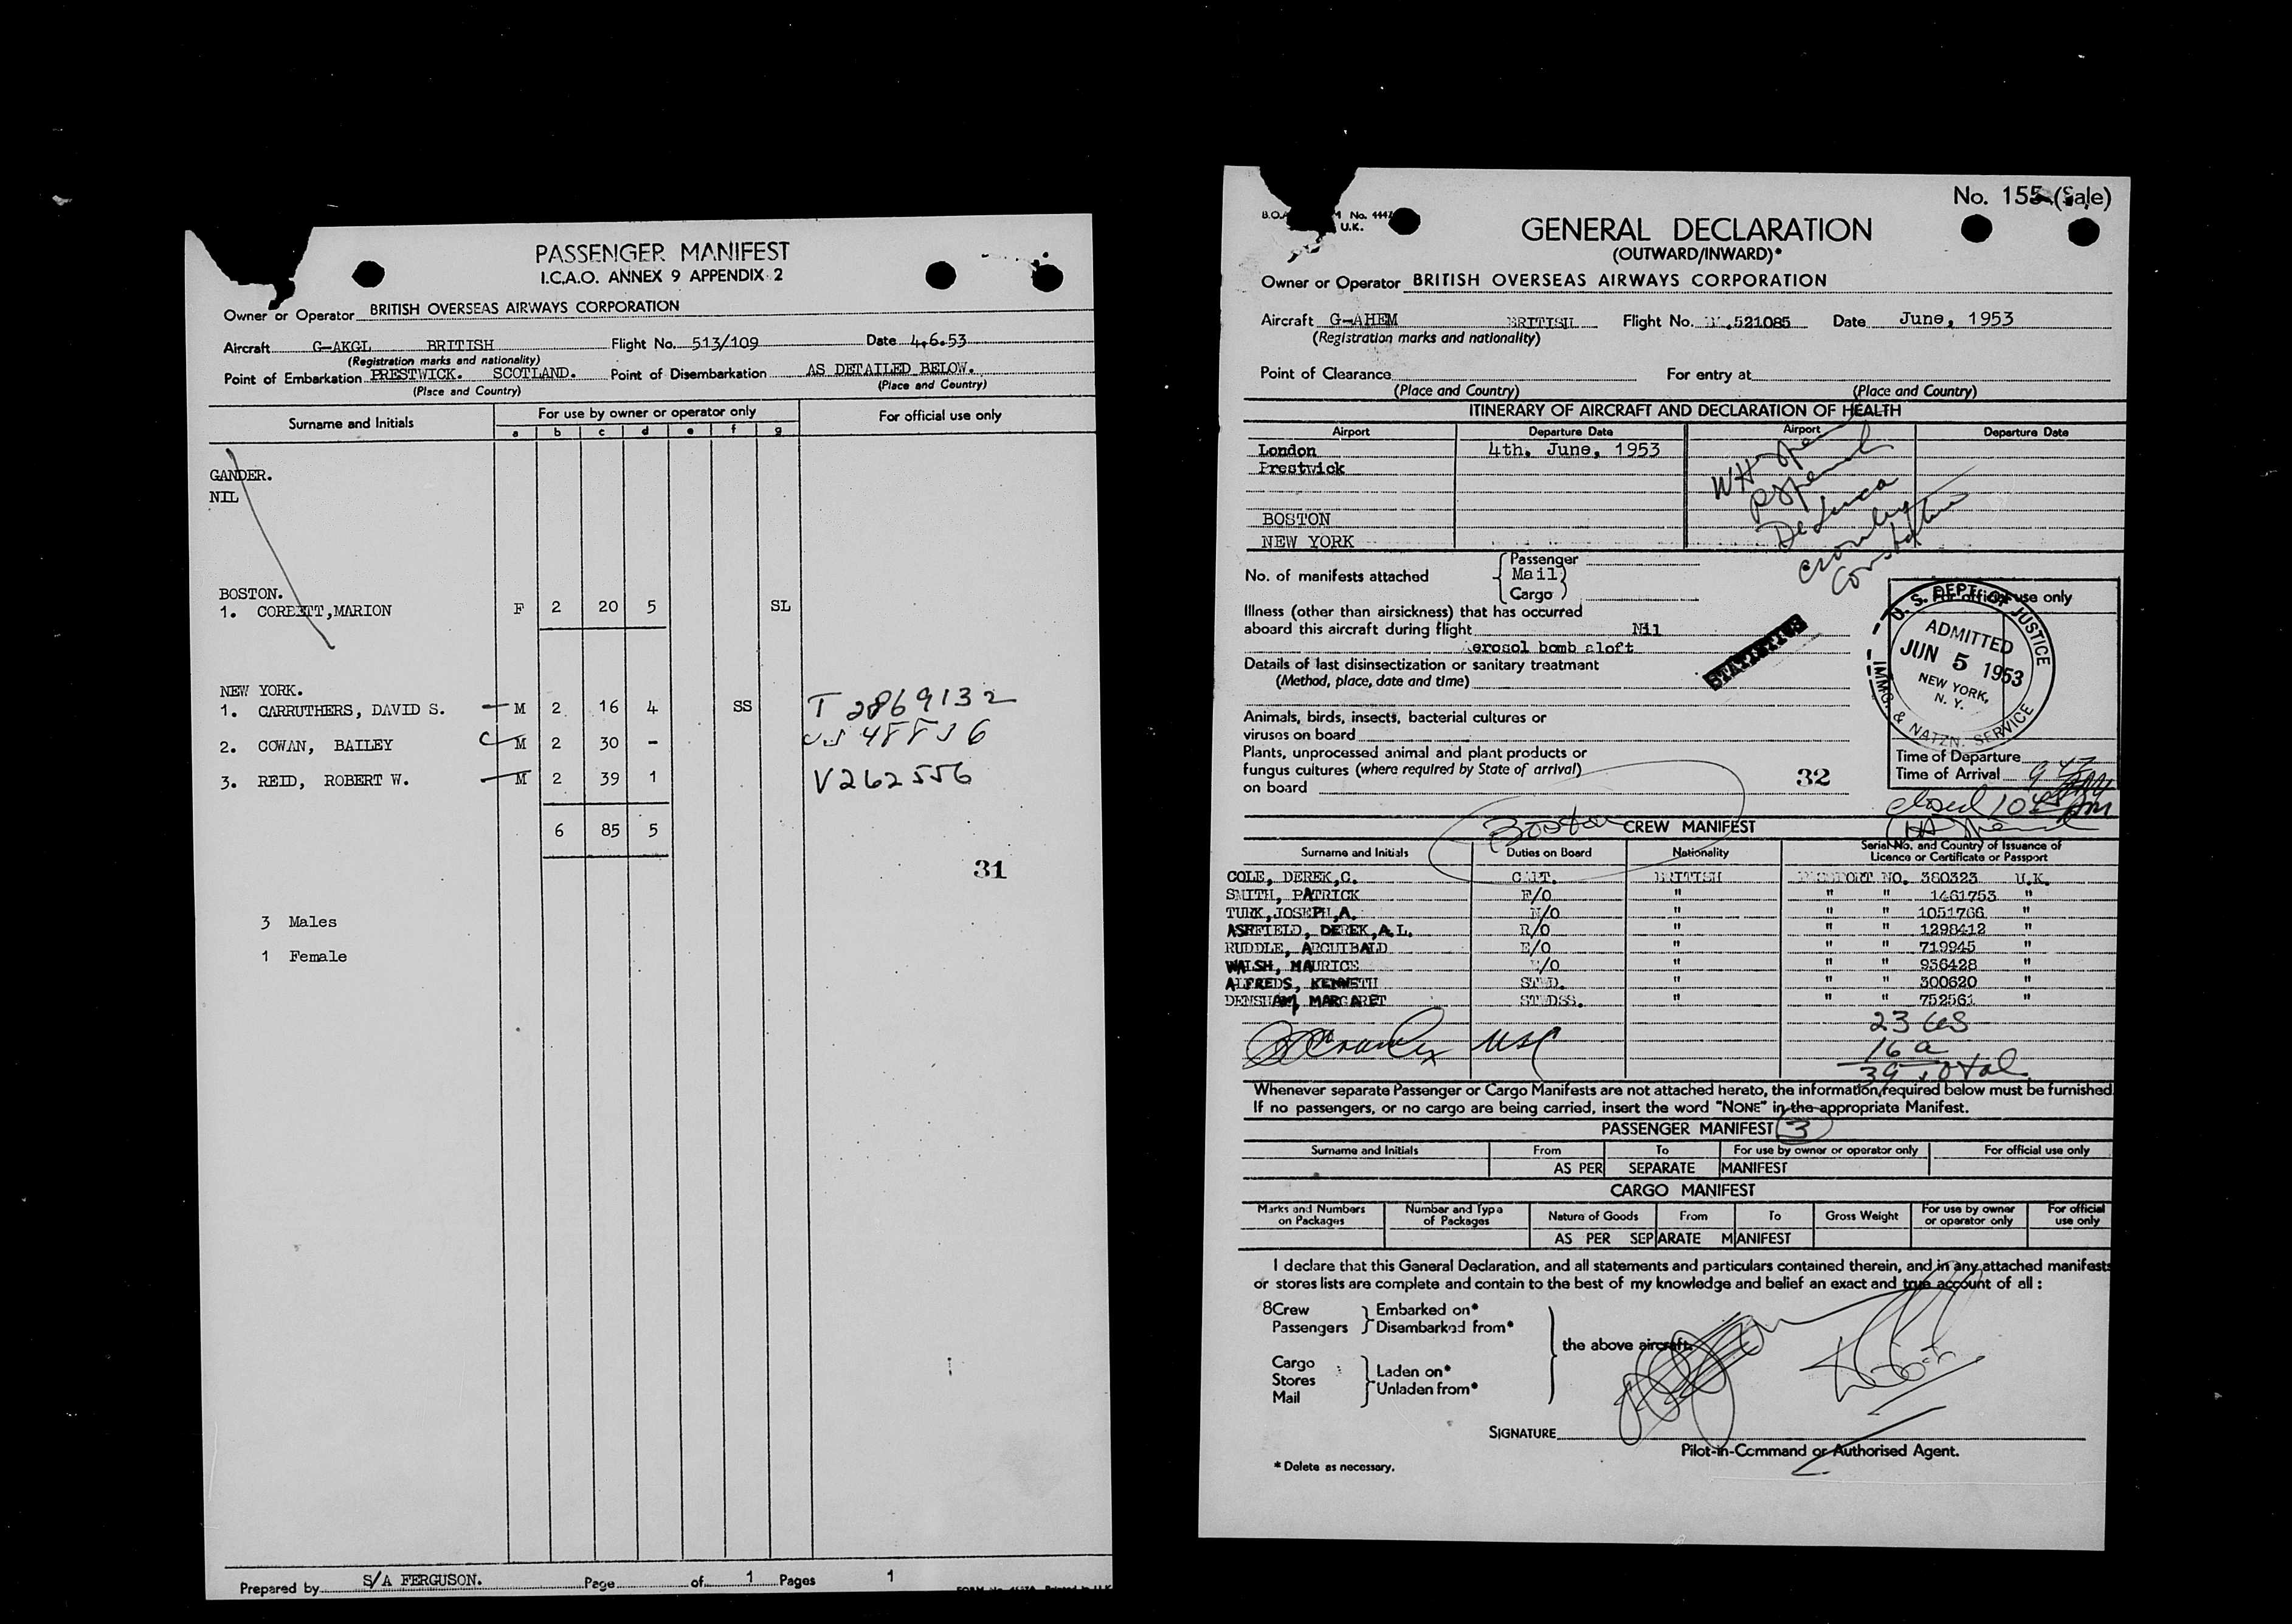 PASSENGER MANIFEST
I.C.A.O. ANNEX 9 APPENDIX 2
Owner or Operator BRITISH OVERSEAS AIRWAYS CORPORATION
Aircraft G-AKGL BRITISH Flight No. 513/109 Date 4.6.53
(Registration marks and nationality)
Point of Embarkation PRESTWICK. SCOTLAND. Point of Disembarkation AS DETAILED BELOW.
(Place and Country) (Place and Country)
Surname and Initials For use by owner or operator only For official use only
a b c d e f g
GANDER.
NIL
BOSTON.
1. CORBETT,MARION F 2 20 5 SL
NEW YORK.
1. CARRUTHERS, DAVID S. M 2 16 4 SS T 2869132
2. COWAN, BAILEY C M 2 30 -
3. REID, ROBERT W. M 2 39 1 V262556
6 85 5
31
3 Males
1 Female
Prepared by S/A FERGUSON. Page of 1 Pages 1
No. 155 (Sale)
No. 4442
U.K.
GENERAL DECLARATION
(OUTWARD/INWARD)*
Owner or Operator BRITISH OVERSEAS AIRWAYS CORPORATION
Aircraft G-AHEM BRITISH Flight No. 521085 Date June, 1953
(Registration marks and nationality)
Point of Clearance For entry at
(Place and Country) (Place and Country)
ITINERARY OF AIRCRAFT AND DECLARATION OF HEALTH
Airport Departure Date Airport Departure Date
London 4th. June, 1953
Prestwick
BOSTON
NEW YORK
DeLuca
Crowley
No. of manifests attached
Passenger
Mail
Cargo
For official use only
Illness (other than airsickness) that has occurred
aboard this aircraft during flight Nil
erosol bomb aloft
Details of last disinsectization or sanitary treatment
(Method, place, date and time)
STATISTICS
U. S. DEPT. OF JUSTICE
ADMITTED
JUN 5 1953
NEW YORK,
N. Y.
IMMG. & NATZN. SERVICE
Animals, birds, insects, bacterial cultures or
viruses on board
Plants, unprocessed animal and plant products or
fungus cultures (where required by State of arrival)
on board
32
Time of Departure
Time of Arrival
closed
Boston
CREW MANIFEST
Surname and Initials Duties on Board Nationality Serial No. and Country of Issuance of
Licence or Certificate or Passport
COLE, DEREK,C. CAPT. BRITISH PASSPORT NO. 380323 U.K.
SMITH, PATRICK F/O " " " 1461753 "
TURK,JOSEPH,A. N/O " " " 1051766 "
ASHFIELD, DEREK,A.L. R/O " " " 1298412 "
RUDDLE, ARCHIBALD E/O " " " 719945 "
WALSH, MAURICE /O " " " 936428 "
ALFREDS, KENNETH STWD. " " " 300620 "
DENSHAM, MARGARET STWDSS. " " " 752561 "
23
16 a
39 total
Whenever separate Passenger or Cargo Manifests are not attached hereto, the information required below must be furnished
If no passengers, or no cargo are being carried, insert the word "NONE" in the appropriate Manifest.
PASSENGER MANIFEST 3
Surname and Initials From To For use by owner or operator only For official use only
AS PER SEPARATE MANIFEST
CARGO MANIFEST
Marks and Numbers on Packages Number and Type of Packages Nature of Goods From To Gross Weight For use by owner or operator only For official use only
AS PER SEPARATE MANIFEST
I declare that this General Declaration, and all statements and particulars contained therein, and in any attached manifests
or stores lists are complete and contain to the best of my knowledge and belief an exact and true account of all :
8 Crew Embarked on*
Passengers Disembarked from*
the above aircraft.
Cargo Laden on*
Stores Unladen from*
Mail
SIGNATURE
Pilot-in-Command or Authorised Agent.
* Delete as necessary.